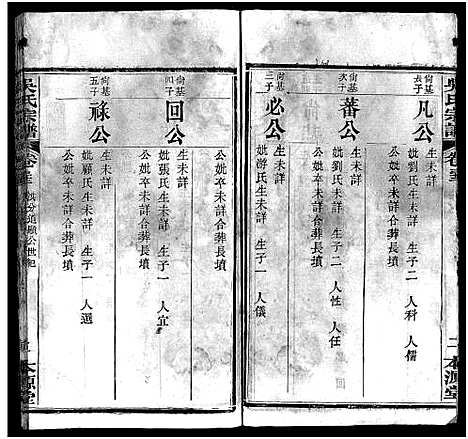 吳氏宗譜
卷三
本源堂
尚基長子
凡公
生未詳
妣劉氏生未詳 生子二 人科 人儒
公妣卒未詳合葬長墳
尚基次子
蕃公
生未詳
妣劉氏生未詳 生子二 人性 人任
公妣卒未詳合葬長墳
尚基三子
必公
生未詳
妣游氏生未詳 生子一 人儀
尚基四子
回公
生未詳
妣張氏生未詳 生子一 人宜
公妣卒未詳合葬長墳
尚基五子
祿公
生未詳
妣顧氏生未詳 生子一 人選
公妣卒未詳合葬長墳
吳氏宗譜
公世紀
本源堂